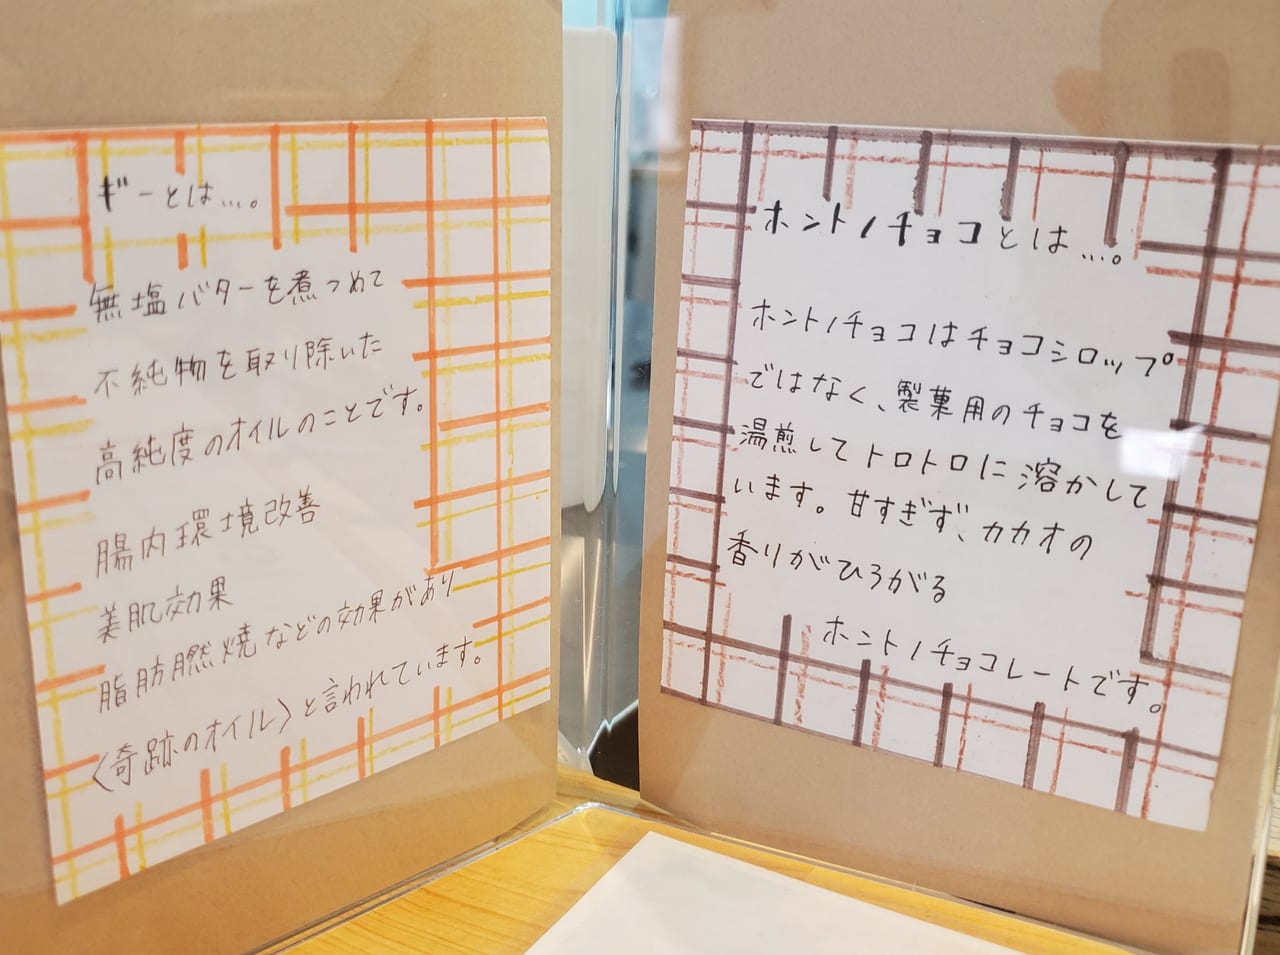 ギーとは…。
無塩バターを煮つめて
不純物を取り除いた
高純度のオイルのことです。
腸内環境改善
美肌効果
脂肪燃焼などの効果があり
〈奇跡のオイル〉と言われています。
ホントノチョコとは…。
ホントノチョコはチョコシロップ
ではなく、製菓用のチョコを
湯煎してトロトロに溶かして
います。甘すぎず、カカオの
香りがひろがる
ホントノチョコレートです。